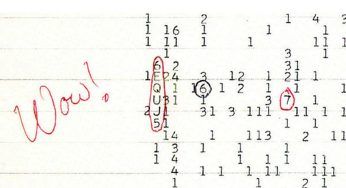 1 2 1 4 3
1 16 1 1 1
1 11 1 1 11 1
1 3
3 1
6 2 3
1 E 24 3 12 1 21 1
Q 1 16 1 2 1 1
U 31 1 3 7 1
J 1
5 1 1 1
14 1 113 2 11
1 3 1 1 1
1 4 1 1 11
4 1 1 1111 1
1 1 2 1
Wow!